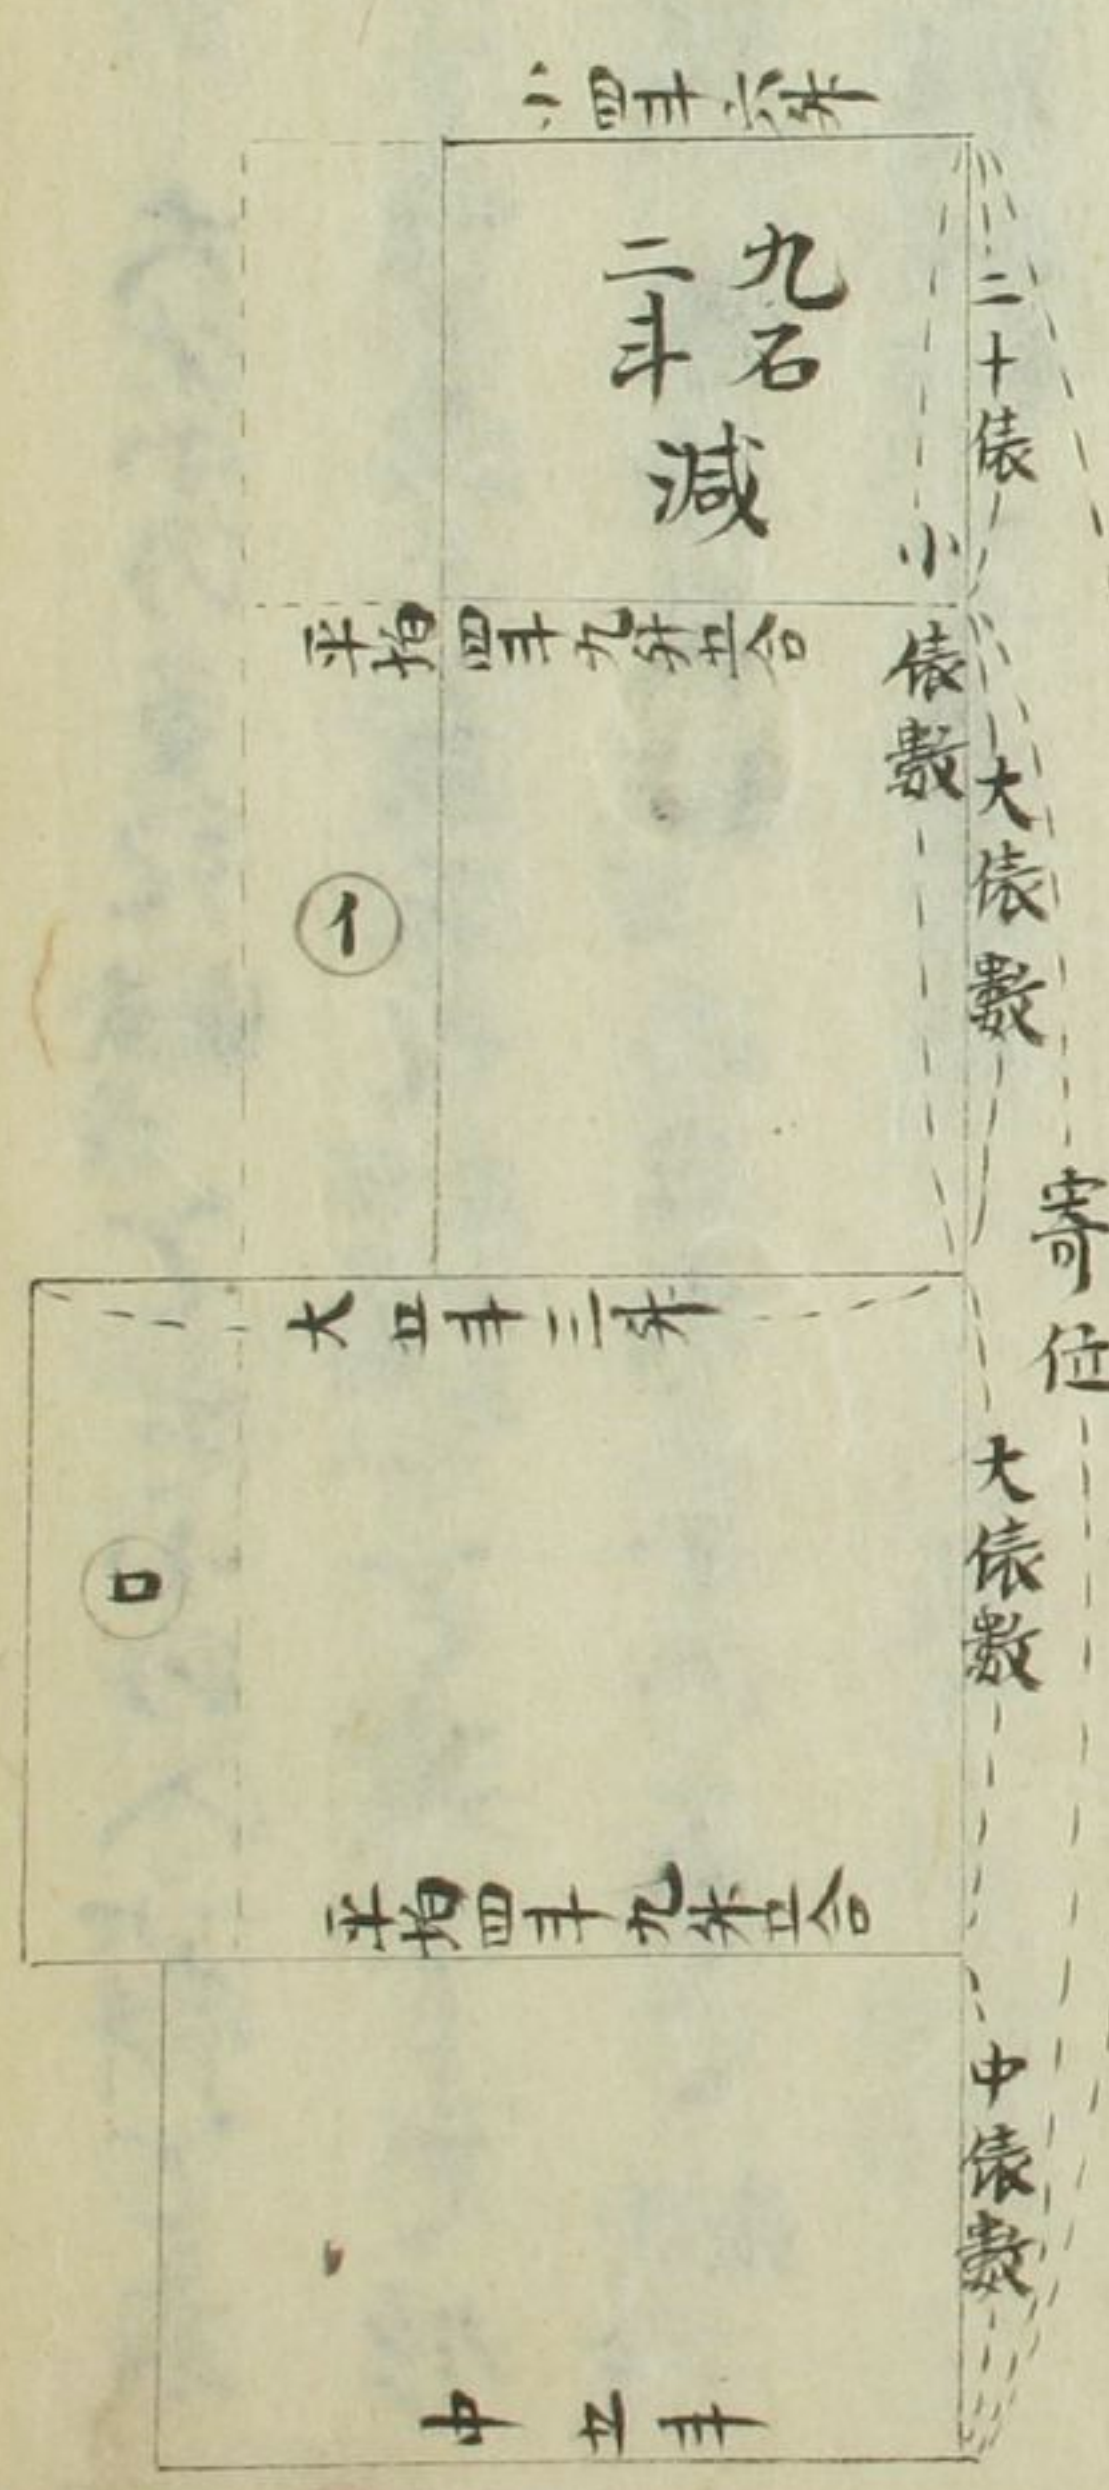 小四斗六升
九石
二斗
減
二十俵
小俵數
平均四斗九升五合
大俵數
イ
寄位
大五斗三升
大俵數
ロ
平均四斗九升五合
中俵數
中五斗